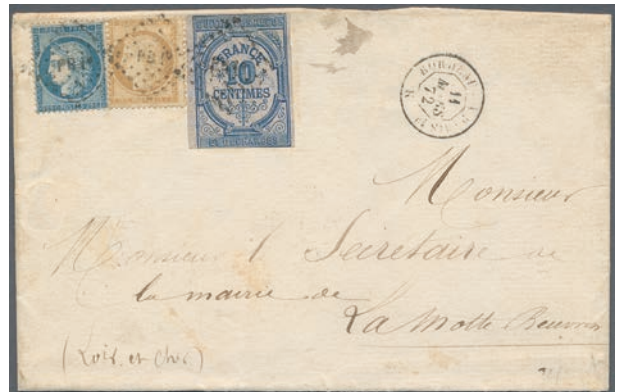 FRANCE
10
CENTIMES
14
MARS
72
Monsieur
Monsieur l Secrétaire de
la mairie de
La Motte Beuvron
(Loir et Cher)